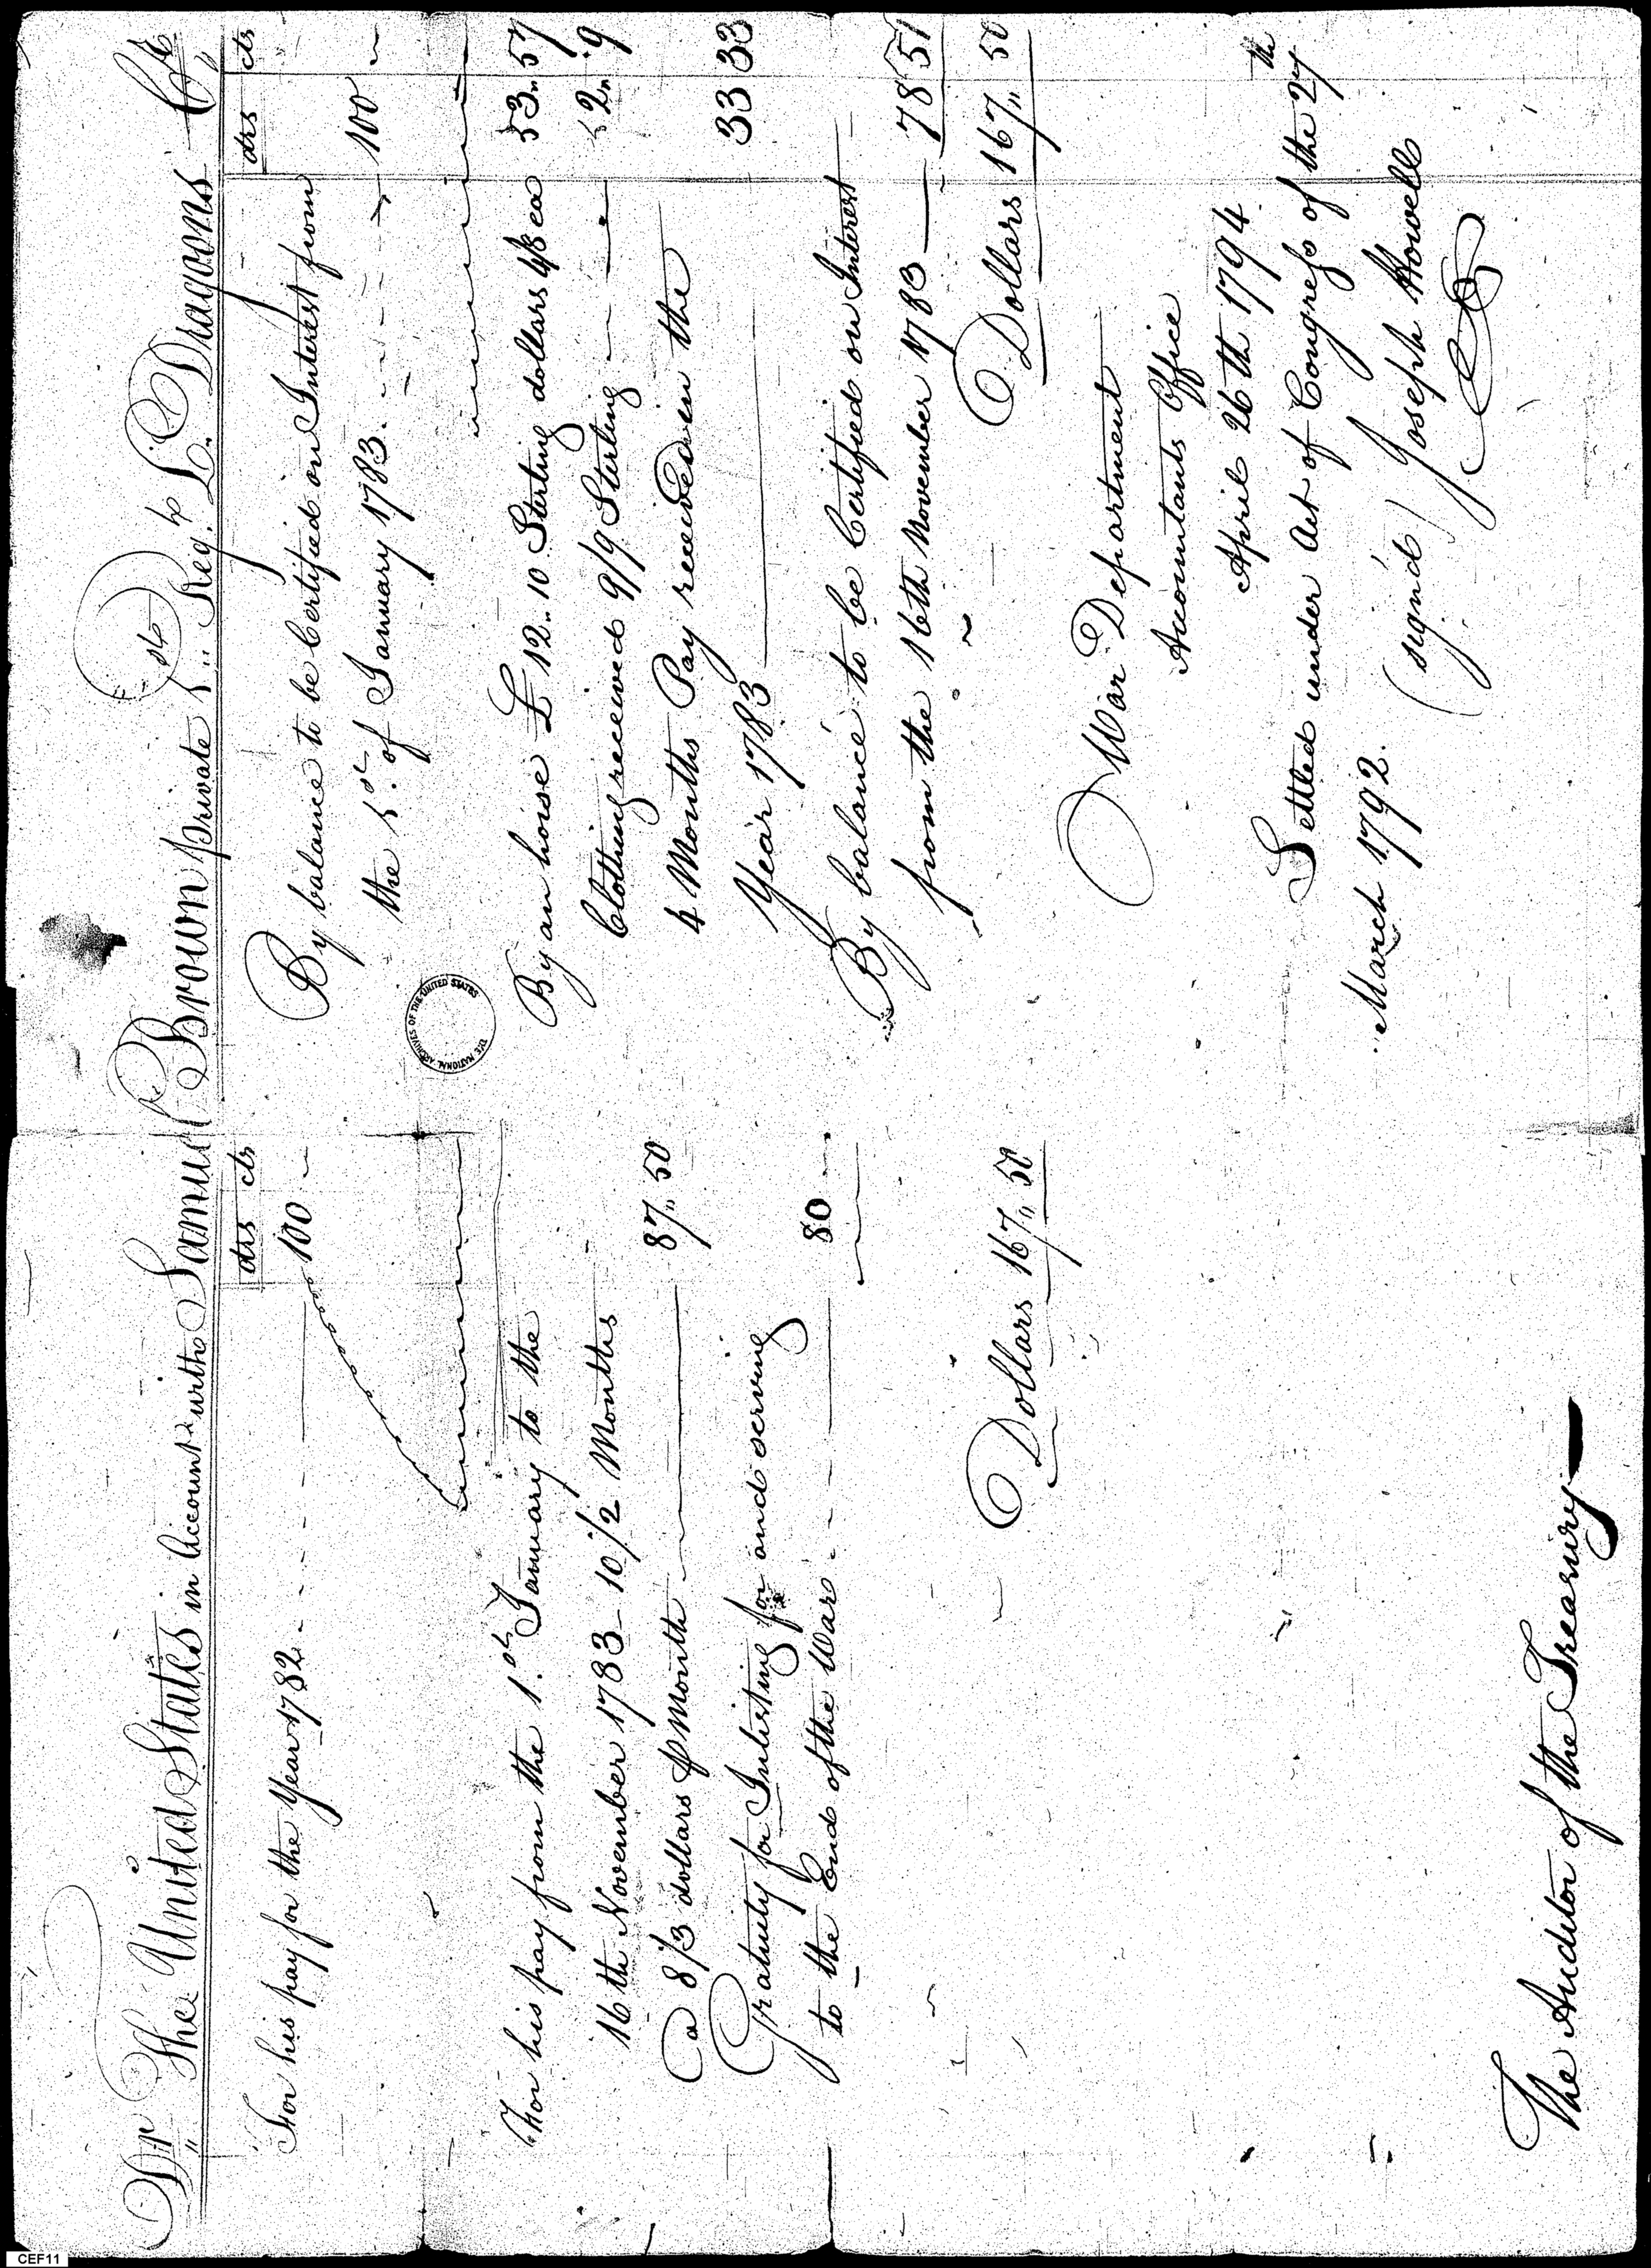 Dr The United States in Account with Samuel Brown private 1st Regt L. Dragoons Cr
drs cts
For his pay for the Year 1782 100
For his pay from the 1st January to the
16th November 1783 - 10 1/2 Months
@ 8 1/3 dollars P Month 87,, 50
Gratuity for Inlisting for and serving
to the End of the War 80
Dollars 167,, 50
The Auditor of the Treasury
drs cts
By balance to be Certified on Interest from
the 1st of January 1783. 100
By an horse £ 12.. 10 Sterling dollars 4/8 ea 53.. 57
Clothing received 9/9 Sterling 2.. 9
4 Months Pay received in the
Year 1783 33 33
By balance to be Certified on Interest
from the 16th November 1783 78 51
Dollars 167,, 50
War Department
Accountants Office
April 26th 1794
Settled under Act of Congress of the 27th
March 1792.
(signd) Joseph Howell
THE NATIONAL ARCHIVES OF THE UNITED STATES
CEF11